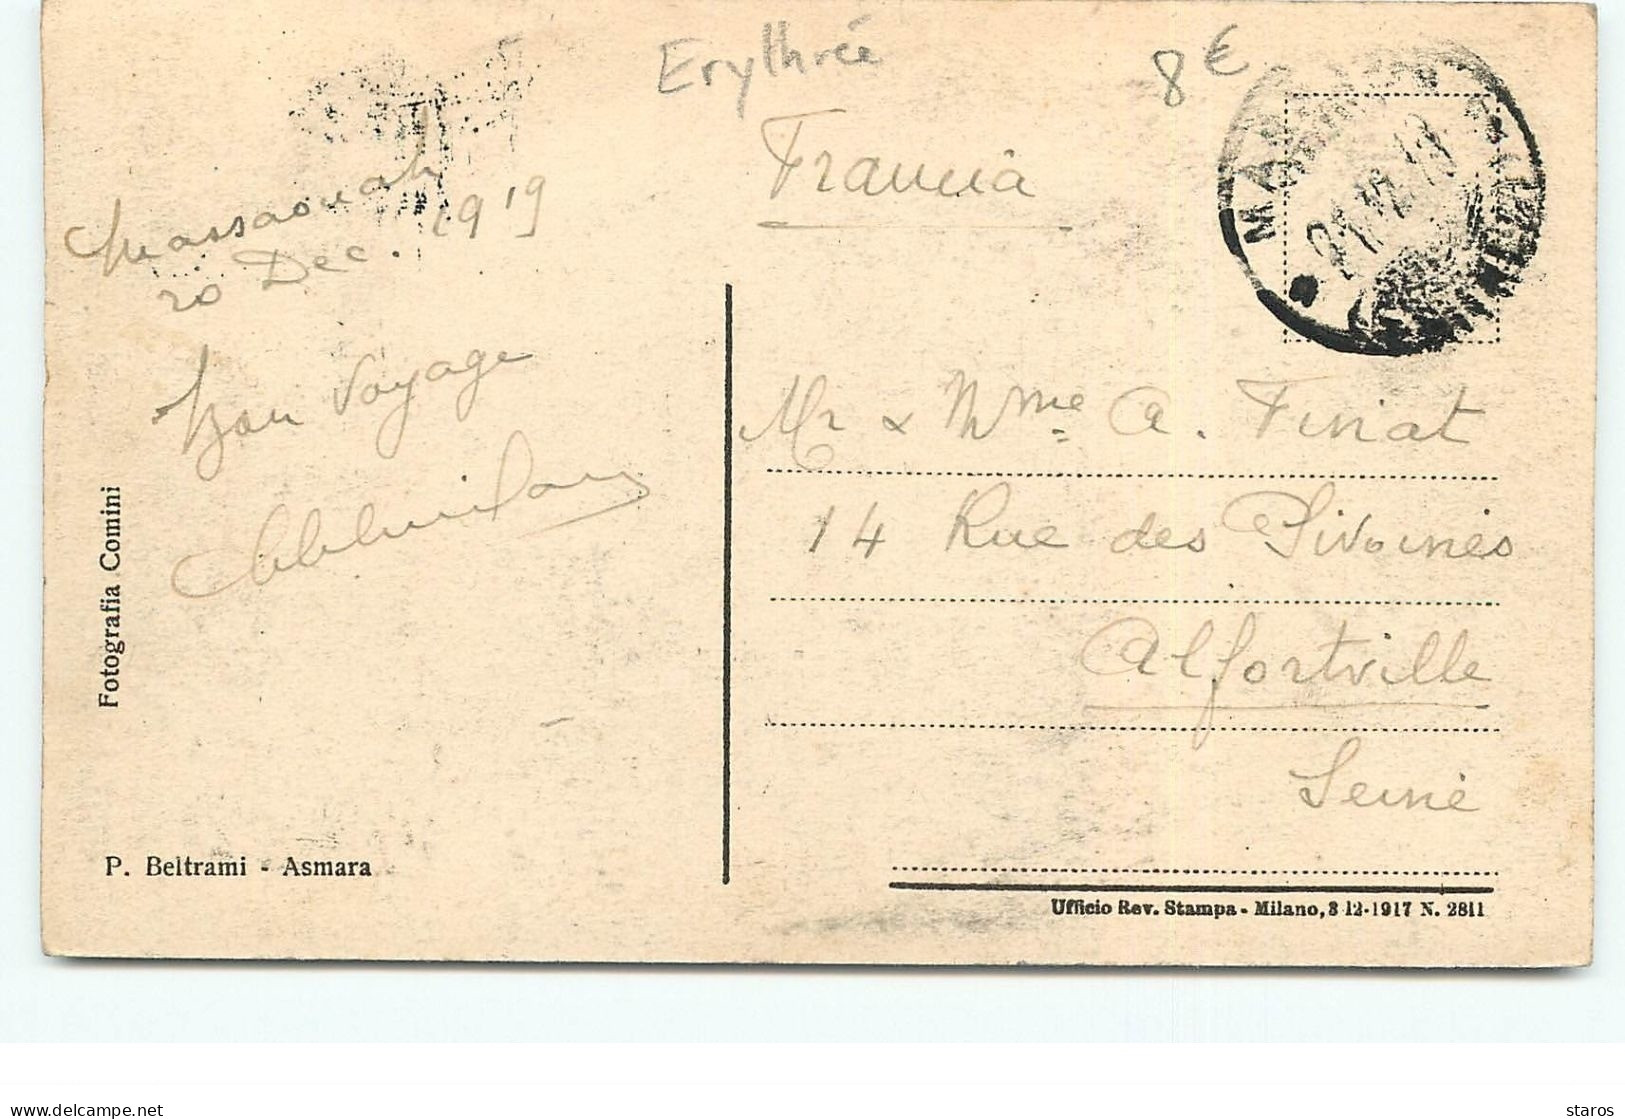 Erythrée
8 €
Massaouah
20 Dec. 1919
Francia
Bon Voyage
Mr & Mme A. Finat
14 Rue des Pivoines
Alfortville
Seine
Fotografia Comini
P. Beltrami - Asmara
Ufficio Rev. Stampa - Milano, 3-12-1917 N. 2811
delcampe.net
staros